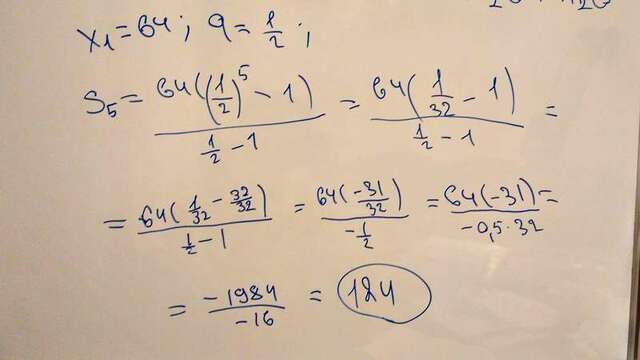 x₁=64; q=1/2;
S₅ = 64((1/2)⁵ - 1) / (1/2 - 1) = 64(1/32 - 1) / (1/2 - 1) =
= 64(1/32 - 32/32) / (1/2 - 1) = 64(-31/32) / (-1/2) = 64(-31) / (-0,5·32) =
= -1984 / -16 = 124